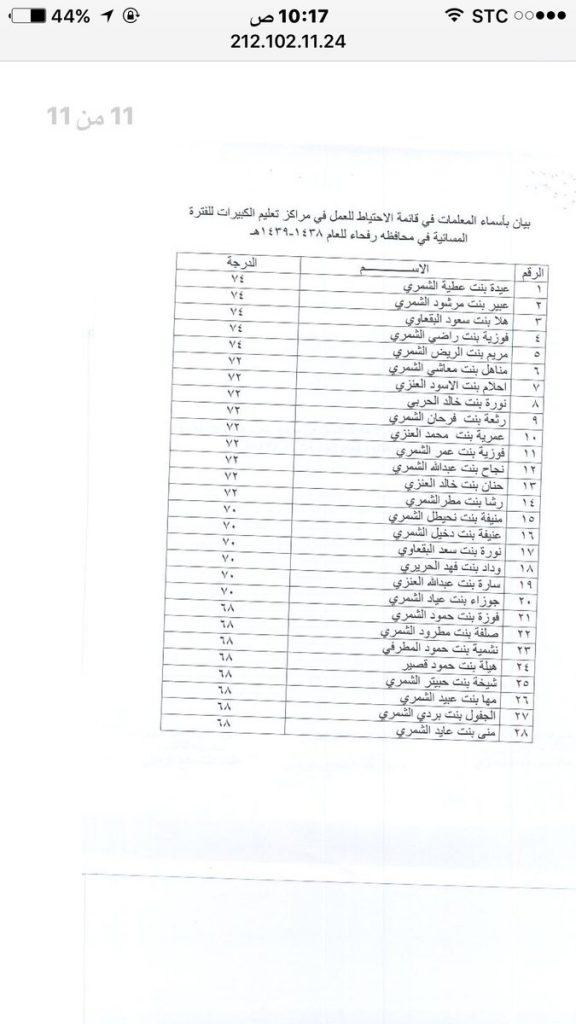 44% 10:17 ص STC
212.102.11.24
11 من 11
بيان بأسماء المعلمات في قائمة الاحتياط للعمل في مراكز تعليم الكبيرات للفترة
المسائية في محافظه رفحاء للعام ١٤٣٨-١٤٣٩هـ
الرقم الاســـــم الدرجة
١ عيدة بنت عطية الشمري ٧٤
٢ عبير بنت مرشود الشمري ٧٤
٣ هلا بنت سعود البقعاوي ٧٤
٤ فوزية بنت راضي الشمري ٧٤
٥ مريم بنت الريض الشمري ٧٤
٦ مناهل بنت معاشي الشمري ٧٢
٧ احلام بنت الاسود العنزي ٧٢
٨ نورة بنت خالد الحربي ٧٢
٩ رثعة بنت فرحان الشمري ٧٢
١٠ عمرية بنت محمد العنزي ٧٢
١١ فوزية بنت عمر الشمري ٧٢
١٢ نجاح بنت عبدالله الشمري ٧٢
١٣ حنان بنت خالد العنزي ٧٢
١٤ رشا بنت مطرالشمري ٧٢
١٥ منيفة بنت نحيطل الشمري ٧٠
١٦ عنيفة بنت دخيل الشمري ٧٠
١٧ نورة بنت سعد البقعاوي ٧٠
١٨ وداد بنت فهد الحريري ٧٠
١٩ سارة بنت عبدالله العنزي ٧٠
٢٠ جوزاء بنت عياد الشمري ٧٠
٢١ فوزة بنت حمود الشمري ٦٨
٢٢ صلفة بنت مطرود الشمري ٦٨
٢٣ نشمية بنت حمود المطرفي ٦٨
٢٤ هيلة بنت حمود قصير ٦٨
٢٥ شيخة بنت حبيتر الشمري ٦٨
٢٦ مها بنت عبيد الشمري ٦٨
٢٧ الجفول بنت بردي الشمري ٦٨
٢٨ منى بنت عايد الشمري ٦٨